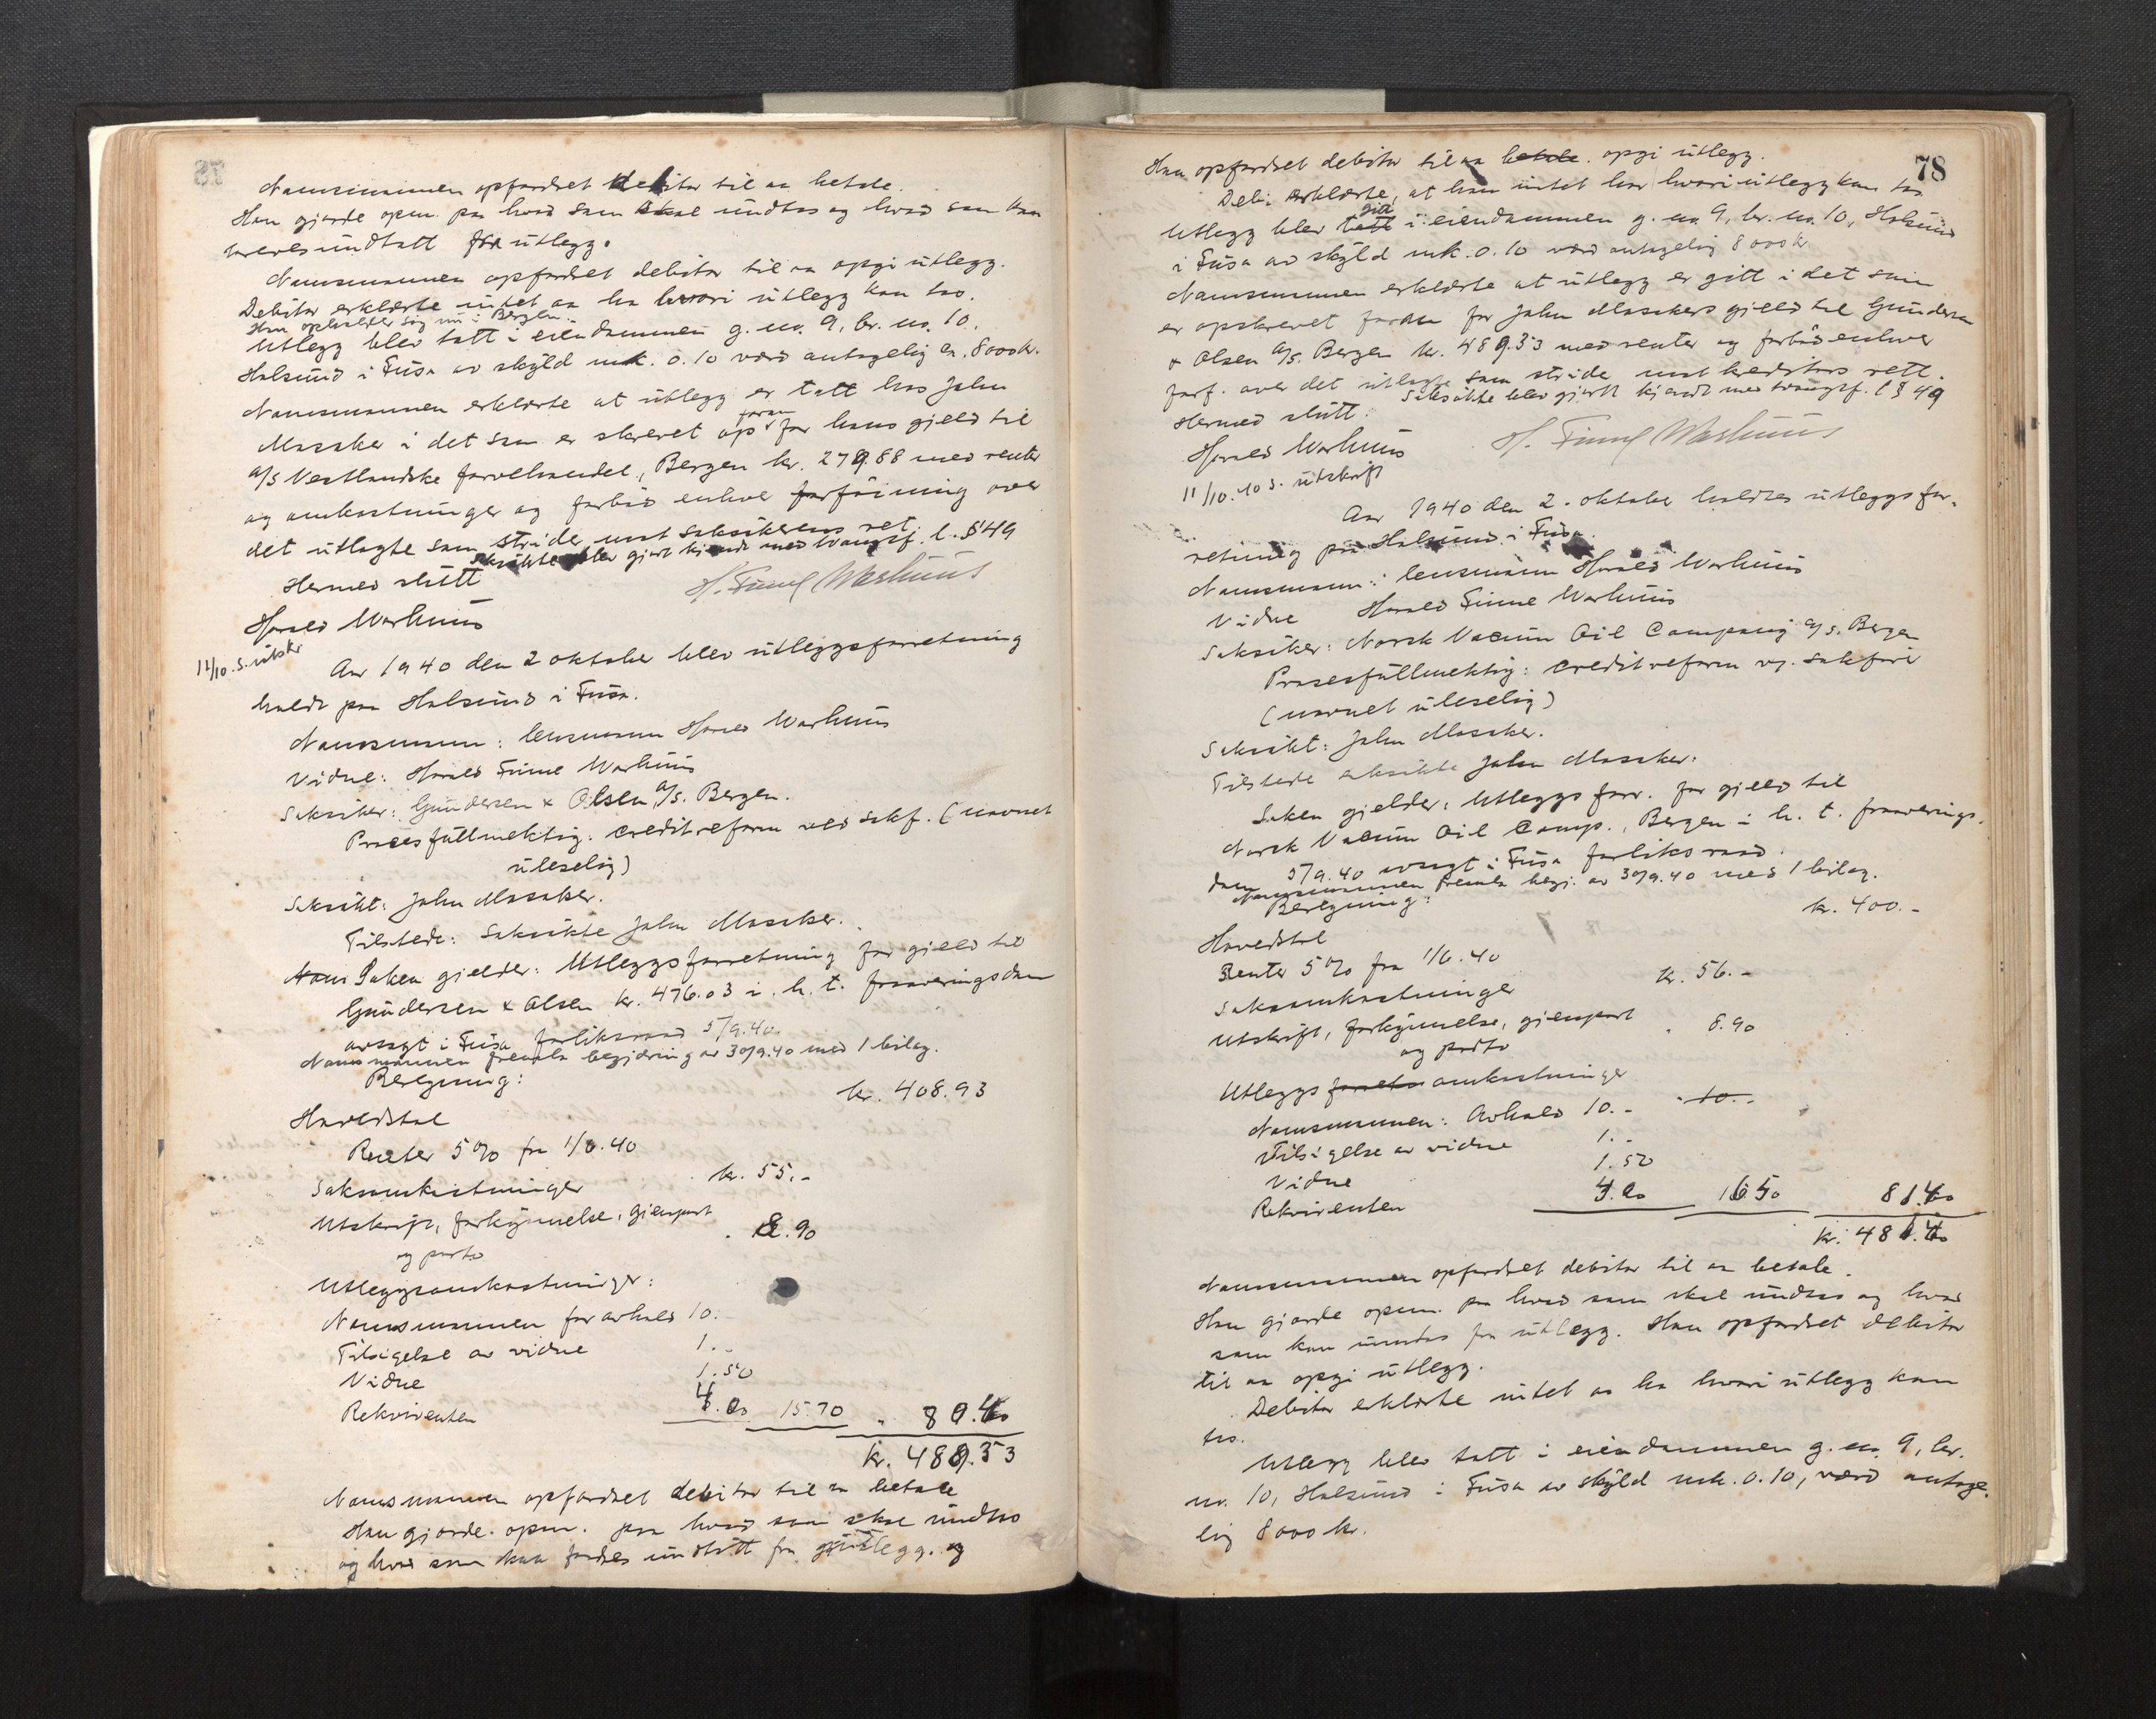 Namsmannen opfordret debitor til aa betale.
Han gjorde opm. paa hvad som skal undtas og hvad som kan
kreves undtatt fra utlegg.
Namsmannen opfordret debitor til aa opgi utlegg.
Debitor erklærte intet aa ha hvori utlegg kan tas.
Han opholder sig nu i Bergen.
Utlegg blev tatt i eiendommen g. no. 9, br. no. 10.
Holsund i Fusa av skyld mk. 0.10 værd antagelig ca. 8000 kr.
Namsmannen erklærte at utlegg er tatt hos John
Mosaker i det som er skrevet op foran for hans gjeld til
A/S Vestlandske farvehandel, Bergen kr. 279.88 med renter
og omkostninger og forbød enhver forføining over
det utlagte som strider mot saksøkerens ret.
Saksøkte blev gjort kjendt med tvangsf. l. §49
Hermed slutt
H. Finne Warhuus
Harald Warhuus
11/10.s. utskr
Aar 1940 den 2 oktober blev utleggsforretning
holdt paa Holsund i Fusa.
Namsmann: lensmann Harald Warhuus
Vidne: Harald Finne Warhuus
Saksøker: Gundersen & Olsen A/S. Bergen.
Prosesfullmektig: Creditreform ved sakf. (navnet
uleselig)
Saksøkt: John Mosaker.
Tilstede: Saksøkte John Mosaker.
Saken gjelder: Utleggsforretning for gjeld til
Gundersen & Olsen kr. 476.03 i h. t. fraværingsdom
avsagt i Fusa forliksraad 5/9.40.
Namsmannen fremla begjæring av 30/9.40 med 1 bilag.
Beregning:
Hovedstol kr. 408.93
Renter 5% fra 1/6.40
Saksomkostninger kr. 55.-
Utskrift, forkynnelse, gjenpart
og porto . 8.90
Utleggsomkostninger:
Namsmannen for avhold 10.
Tilsigelse av vidne 1..
Vidne 1.50
Rekvirenten 4.00 15.70 " 80.40
kr. 489.33
Namsmannen opfordret debitor til aa betale
Han gjorde opm. paa hvad som skal undtas
og hvad som kan fordres undtatt fra utlegg. og
78
Han opfordret debitor til aa betale. opgi utlegg.
Deb. erklærte, at han intet har hvori utlegg kan tas
Utlegg blev tatt gitt i eiendommen g. no. 9, br. no. 10, Holsund
i Fusa av skyld mk. 0.10 værd antagelig 8000 kr.
Namsmannen erklærte at utlegg er gitt i det som
er opskrevet foran for John Mosakers gjeld til Gundersen
& Olsen A/S. Bergen kr. 489.33 med renter og forbød enhver
forf. over det utlagte som strider mot kreditors rett.
Saksøkte blev gjort kjendt med tvangsf. l § 49
Hermed slutt.
Harald Warhuus H. Finne Warhuus
11/10.40 s. utskrift
Aar 1940 den 2. oktober holdtes utleggsfor-
retning paa Holsund i Fusa.
Namsmann: lensmann Harald Warhuus
Vidne Harald Finne Warhuus
Saksøker: Norsk Vacuum Oil Company A/S. Bergen
Prosesfullmektig: Creditreform v/. sakfører
(navnet uleselig)
Saksøkt: John Mosaker.
Tilstede saksøkte John Mosaker.
Saken gjelder: Utleggsforr. for gjeld til
Norsk Vacuum Oil Comp., Bergen i h. t. fraværings-
dom 5/9.40 avsagt i Fusa forliksraad.
Namsmannen fremla begj. av 30/9.40 med 1 bilag.
Beregning:
Hovedstol kr. 400.-
Renter 5% fra 1/6.40
Saksomkostninger kr. 56.-
Utskrift, forkynnelse, gjenpart
og porto " 8.90
Utleggsomkostninger
Namsmannen: Avhold 10.- 10.-
Tilsigelse av vidne 1.-
Vidne 1.50
Rekvirenten 4.00 16.50 81.40
kr. 481.40
Namsmannen opfordret debitor til aa betale.
Han gjorde opm. paa hvad som skal undtas og hvad
som kan undtas fra utlegg. Han opfordret debitor
til aa opgi utlegg.
Debitor erklærte intet aa ha hvori utlegg kan
tas.
Utlegg blev tatt i eiendommen g. no. 9, br.
no. 10, Holsund i Fusa av skyld mk. 0.10, værd antage-
lig 8000 kr.